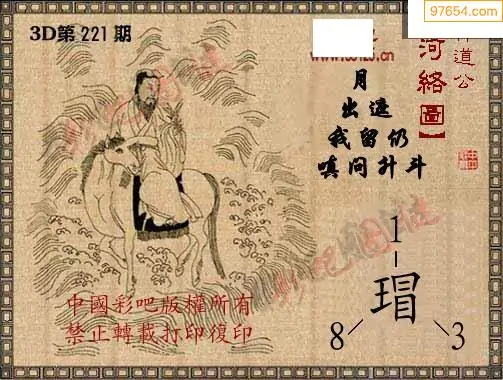 97654.com
3D第221期
道公
河絡圖】
月
出运
我留仍
嗔问升斗
1
瑁
8
3
中國彩吧版權所有
禁止轉載打印復印